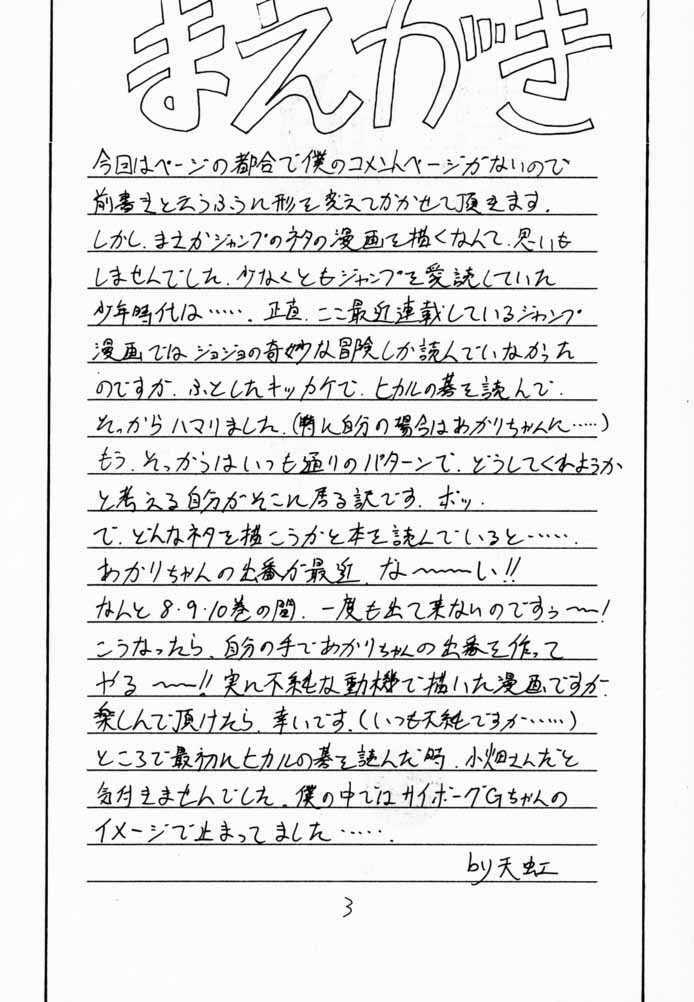 まえがき
今回はページの都合で僕のコメントページがないので
前書きと云うふうに形を変えてかかせて頂きます.
しかし、まさかジャンプのネタの漫画を描くなんて、思いも
しませんでした、少なくともジャンプを愛読していた
少年時代は……、正直、ここ最近連載しているジャンプ
漫画ではジョジョの奇妙な冒険しか読んでいなかった
のですが、ふとしたキッカケで、ヒカルの碁を読んで、
そっからハマりました、(特に自分の場合はあかりちゃんに……)
もう、そっからはいつも通りのパターンで、どうしてくれようか
と考える自分がそこに居る訳です、ポッ、
で、どんなネタを描こうかと本を読んでいると……、
あかりちゃんの出番が最近、な〜〜〜い!!
なんと8・9・10巻の間、一度も出て来ないのですぅ〜!
こうなったら、自分の手であかりちゃんの出番を作って
やる〜〜!!実に不純な動機で描いた漫画ですが、
楽しんで頂けたら、幸いです、(いつも不純ですが……)
ところで最初にヒカルの碁を読んだ時、小畑さんだと
気付きませんでした、僕の中ではサイボーグGちゃんの
イメージで止まってました……、
by天虹
3